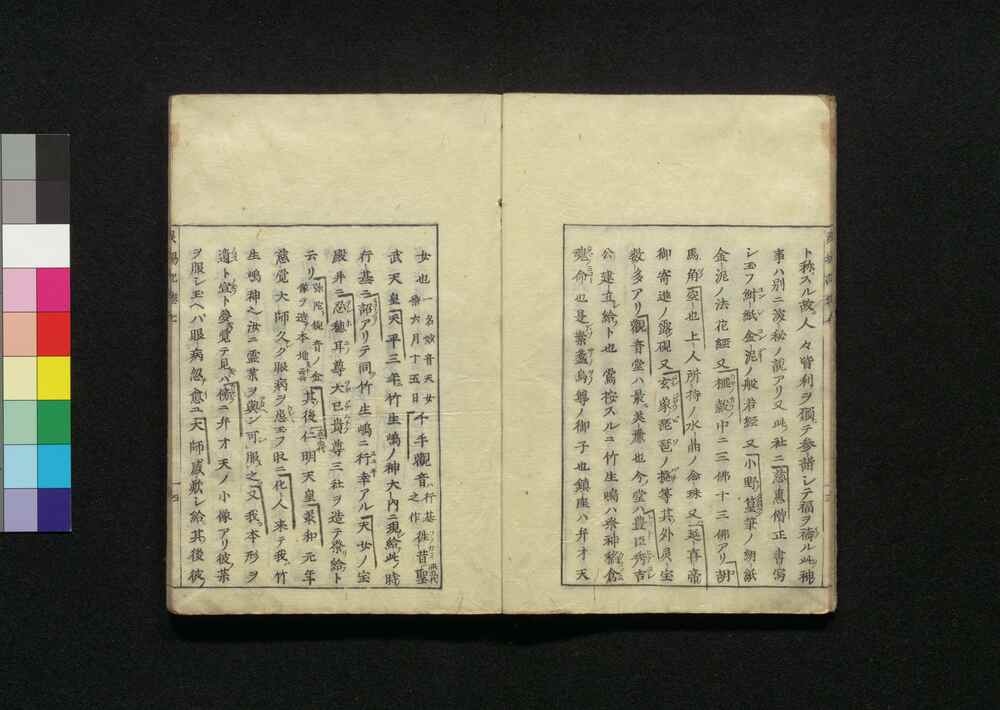 ト称スル故人々皆利ヲ獲テ参詣シテ福ヲ祷ル此神
事ハ別ニ深秘ノ説アリ又此社ニ慈惠僧正書寫
シ玉フ紺紙金泥ノ般若経又小野篁筆ノ紺紙
金泥ノ法花経又櫃ノ中ニ三佛十三佛アリ胡
馬角並也上人所持ノ水晶ノ念珠又延喜帝
御寄進ノ露硯又玄象琵琶ノ撥等其外良宝
数多アリ観音堂ハ最美麗也今ノ堂ハ豊臣秀吉
公建立シ給ト也當按スルニ竹生嶋ハ祭神稲倉
魂命也是素盞烏尊ノ御子也鎮座ハ弁才天
女也一名妙音天女祭六月十五日千手観音行基之作往昔聖
武天皇天平三年竹生嶋ノ神大内ニ現給此時
行基ニ詔アリテ同竹生嶋ニ行幸アル天女ノ宝
殿并ニ忍穂耳尊大已貴尊三社ヲ造テ祭給ト
云リ弥陀観音ノ金像ヲ造ヲ本地ト云其後仁明天皇承和元年
慈覚大師久ク眼病ヲ患玉フ取ニ化人来テ我竹
生嶋神之汝ニ霊薬ヲ與ン可服之又我本形ヲ
遺ト宣ト夢覚テ見ハ傍ニ弁才天ノ小像アリ彼薬
ヲ服シ玉ヘハ眼病忽愈ユ大師感歎シ給其後彼